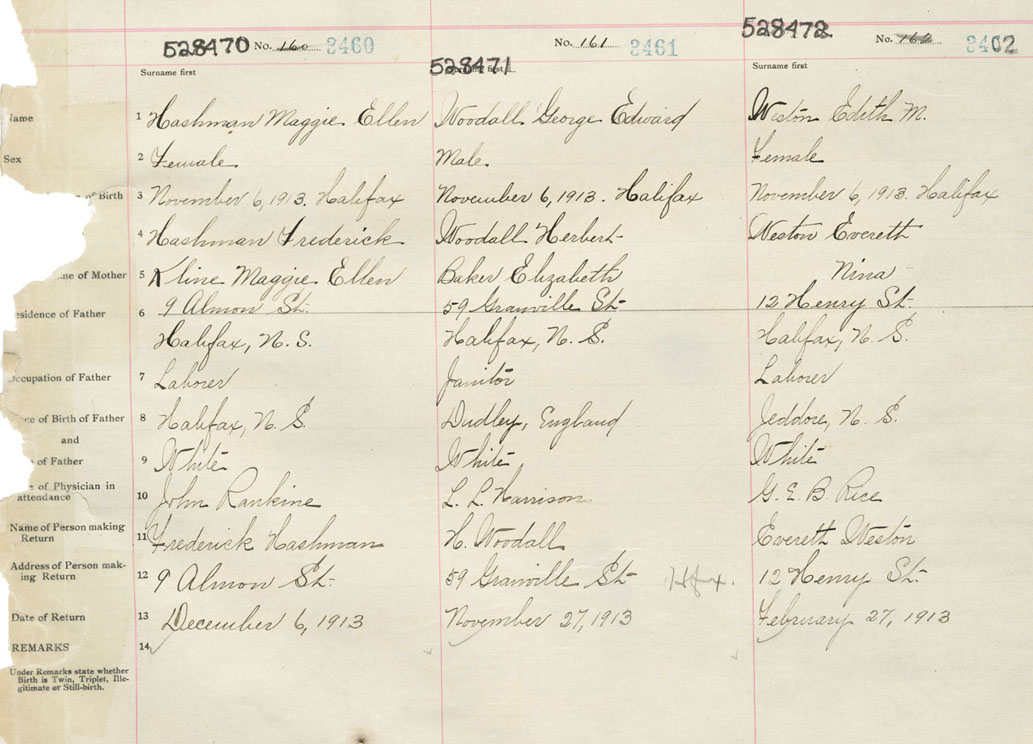 528470 No. 160 3460
No. 161 3461
528472 No. 162 3402
Surname first
528471
Surname first
Name 1 Hashman Maggie Ellen Woodall George Edward Weston Edith M.
Sex 2 Female Male. Female
of Birth 3 November 6, 1913. Halifax November 6, 1913. Halifax November 6, 1913. Halifax
4 Hashman Frederick Woodall Herbert Weston Evereth
me of Mother 5 Kline Maggie Ellen Baker Elizabeth Nina
esidence of Father 6 9 Almon St. 59 Granville St. 12 Henry St.
Halifax, N.S. Halifax, N.S. Halifax, N.S.
Occupation of Father 7 Laborer Janitor Laborer
ce of Birth of Father 8 Halifax, N.S. Dudley, England Jeddore, N.S.
and
of Father 9 White White White
of Physician in
attendance 10 John Rankine L. L. Harrison G. E. B. Rice
Name of Person making
Return 11 Frederick Hashman H. Woodall Evereth Weston
Address of Person mak-
ing Return 12 9 Almon St. 59 Granville St. Hfx. 12 Henry St.
Date of Return 13 December 6, 1913 November 27, 1913 February 27, 1913
REMARKS 14
Under Remarks state whether
Birth is Twin, Triplet, Ille-
gitimate or Still-birth.